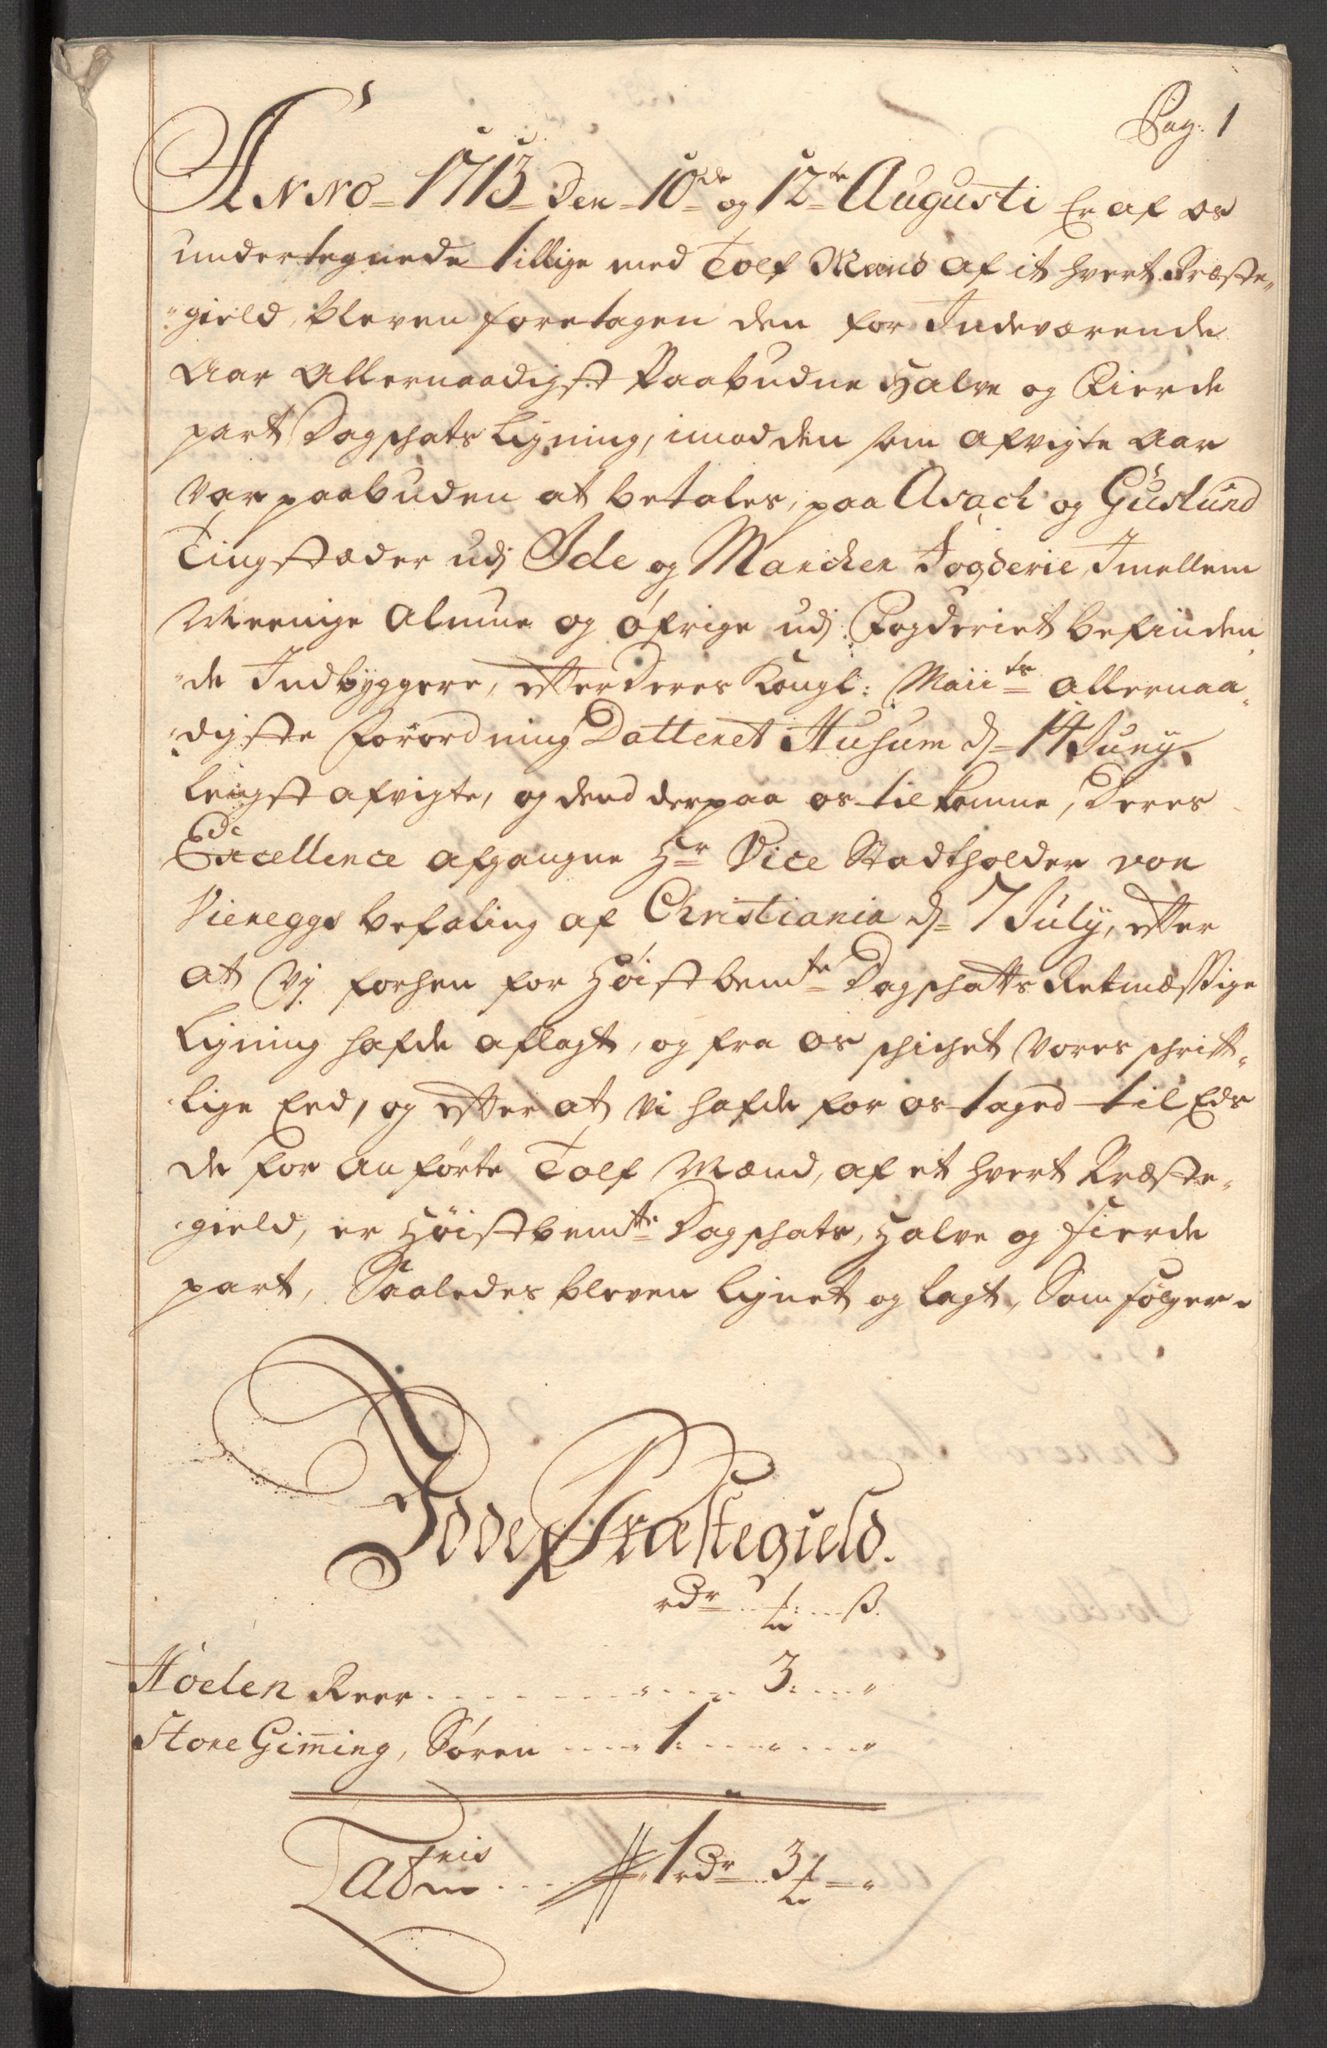 Pag: 1
Anno 1713 Den 10de og 12te Augusti Er af os
undertegnede tillige med Tolf Mænd af it hvert Præste-
gield, bleven foretagen den for Indeværende
Aar Allernaadigst Paabudne Halve og Fierde
part Dagschats Ligning, imod den som afvigte Aar
var paabuden at betales, paa Asach og Guslund
Tingstæder udj Ide og Marcken Fogderie, Imellem
Meenige Almue og Øfrige udj Fogderiet befinden-
de Indbyggere, efter Deres Kongl: Maiits allernaa-
digste Forordning Datteret Husum d. 14 Juny
lengst afvigte, og dend derpaa os tilkomne, Deres
Excellence afgangne Hr Vice Stadtholder von
Vieneggs befaling af Christiania d. 7 July, efter
at Vj forhen for Høistbemte Dagschatts Retmæssige
Ligning hafde aflagt, og fra os schichet Vores schrift-
lige Eed, og efter at vi hafde for os taged til Eds
de for anførte Tolf Mænd, af et hvert Præste-
gield, er Høistbemte Dagschats, Halve og fierde
part, Saaledes bleven lignet og lagt, Som følger.
Idde Præstegield.
rdr ß.
Høelen Peer 3
Store Gim̄ing, Søren 1
Lateris 1 rdr 3